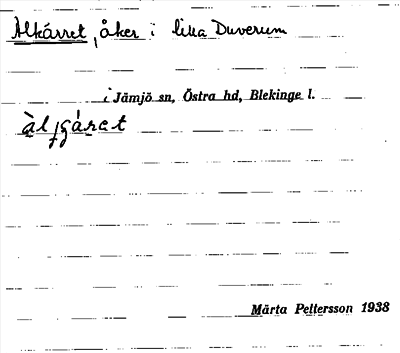 Alkärret, åker i lilla Duverum
i Jämjö sn, Östra hd, Blekinge l.
àljgáret
Märta Pettersson 1938